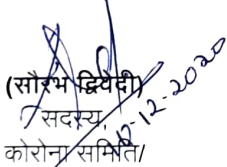 (सौरभ द्विवेदी)
सदस्य,
कोरोना समिति/
17-12-2020